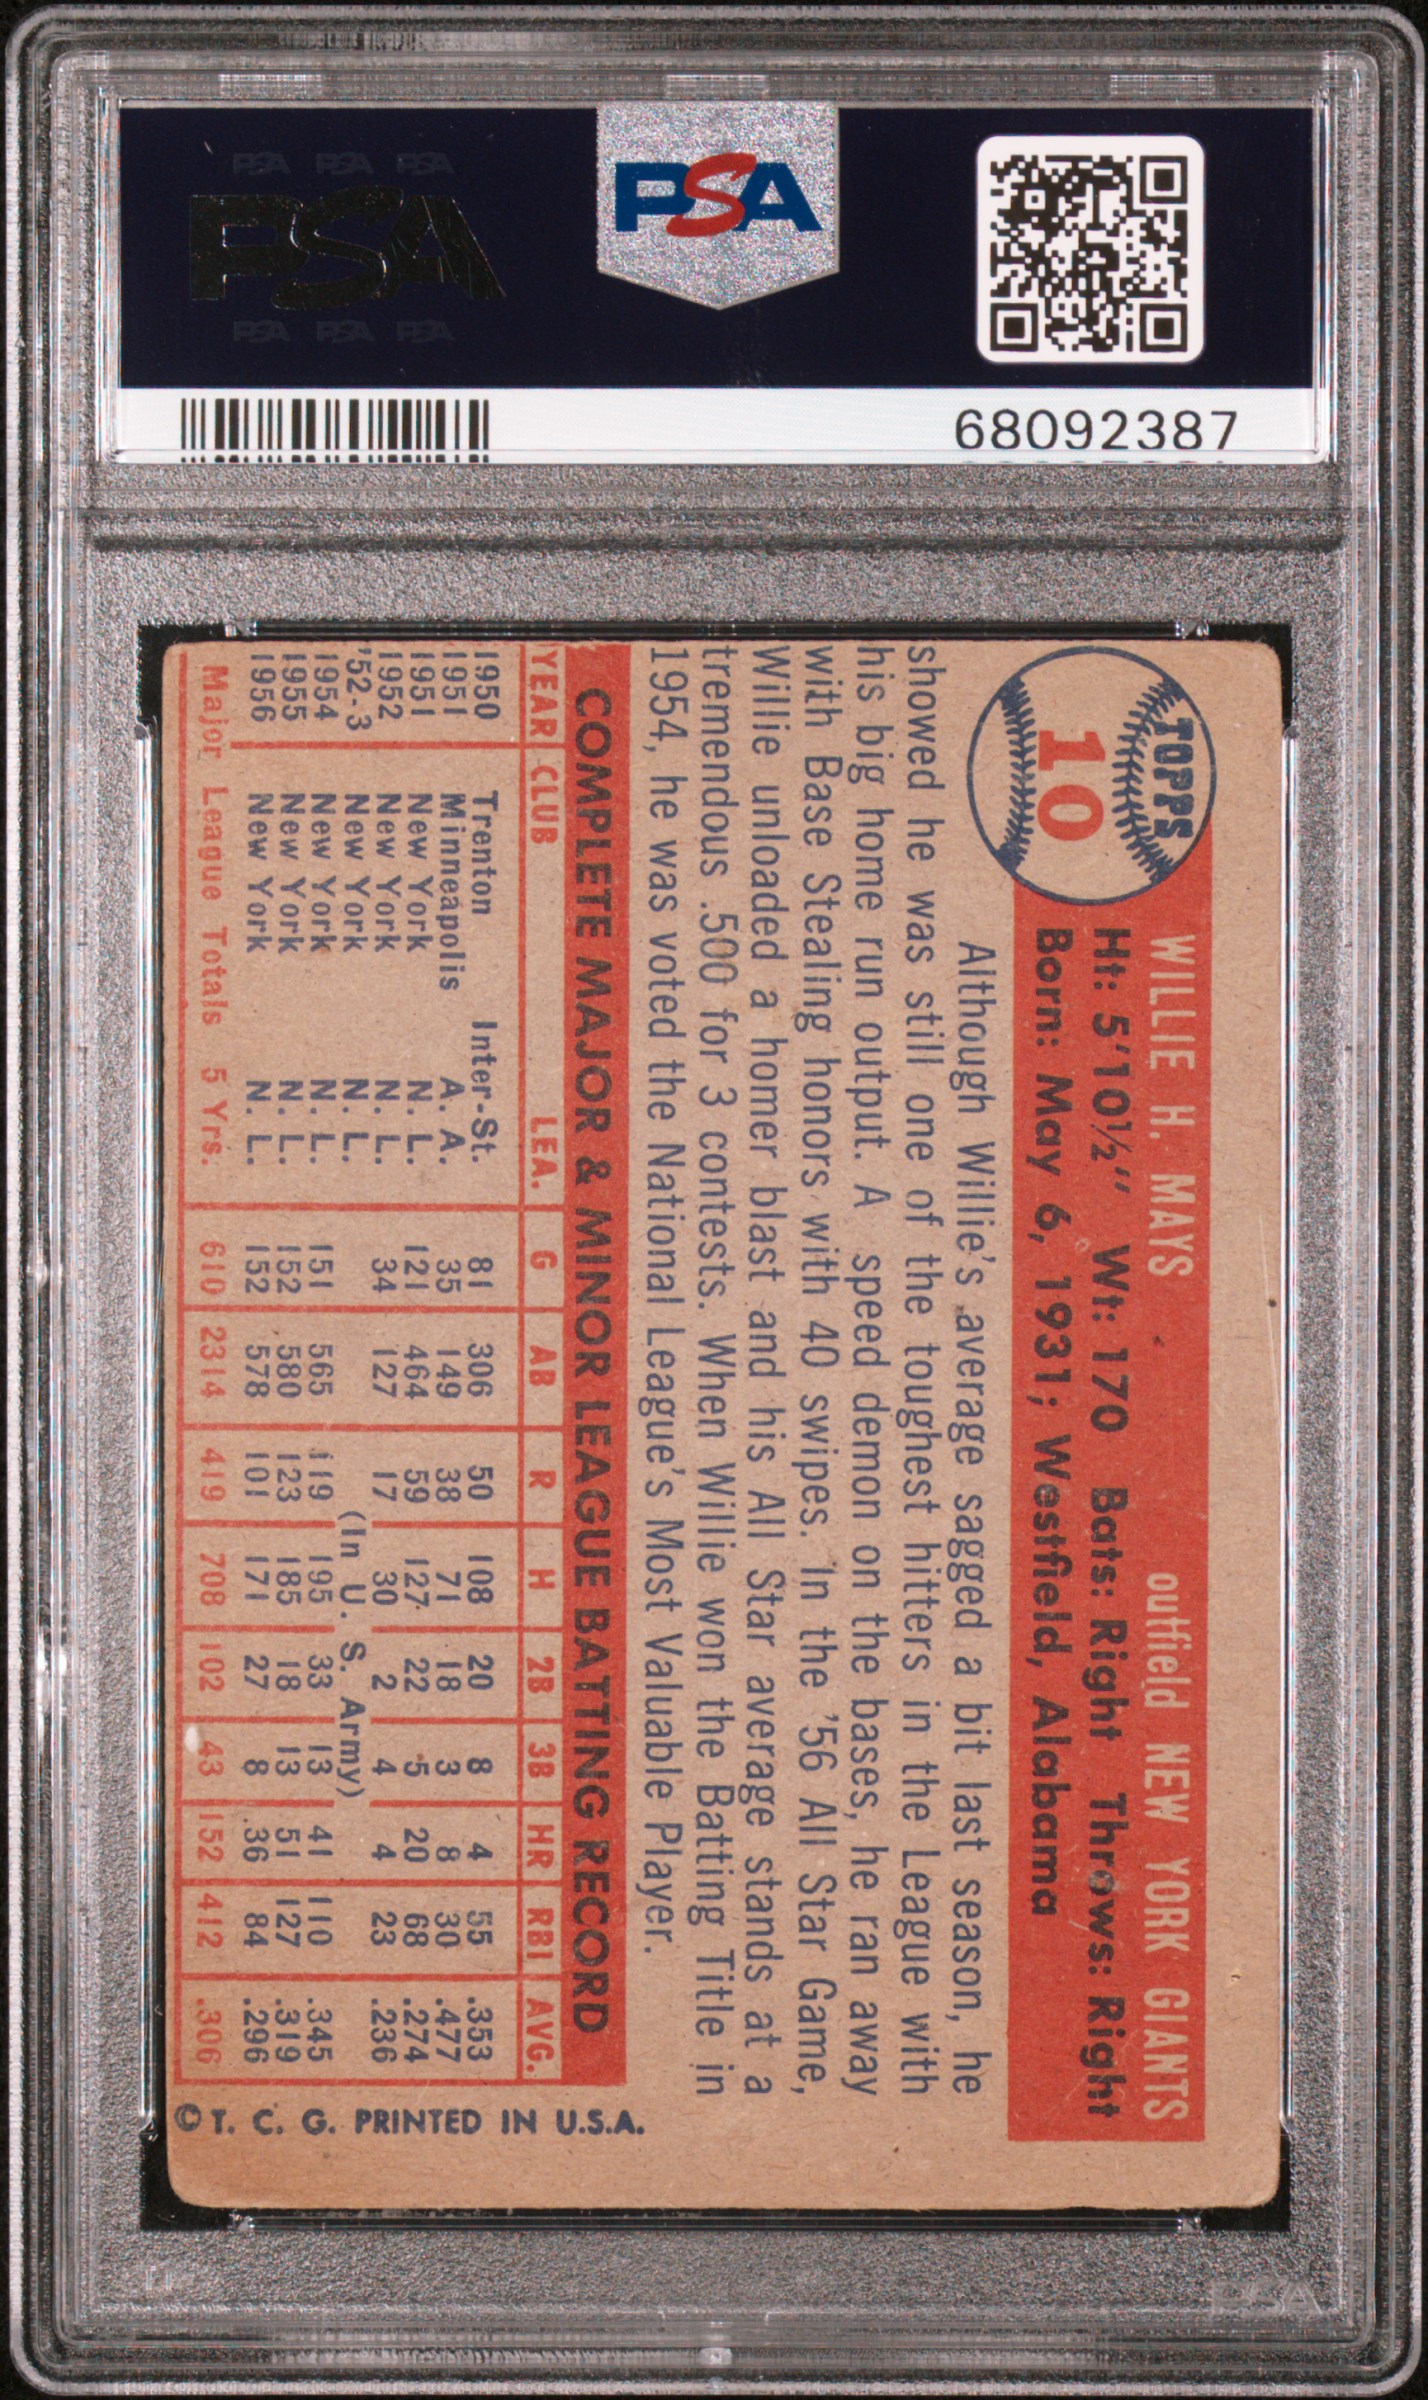 PSA PSA PSA
PSA
PSA PSA PSA
PSA
68092387
TOPPS
10
WILLIE H. MAYS outfield NEW YORK GIANTS
Ht: 5'10½" Wt: 170 Bats: Right Throws: Right
Born: May 6, 1931; Westfield, Alabama
Although Willie's average sagged a bit last season, he
showed he was still one of the toughest hitters in the League with
his big home run output. A speed demon on the bases, he ran away
with Base Stealing honors with 40 swipes. In the '56 All Star Game,
Willie unloaded a homer blast and his All Star average stands at a
tremendous .500 for 3 contests. When Willie won the Batting Title in
1954, he was voted the National League's Most Valuable Player.
COMPLETE MAJOR & MINOR LEAGUE BATTING RECORD
YEAR CLUB LEA. G AB R H 2B 3B HR RBI AVG.
1950 Trenton Inter-St. 81 306 50 108 20 8 4 55 .353
1951 Minneapolis A. A. 35 149 38 71 18 3 8 30 .477
1951 New York N. L. 121 464 59 127 22 5 20 68 .274
1952 New York N. L. 34 127 17 30 2 4 4 23 .236
'52-3 New York N. L. (In U. S. Army)
1954 New York N. L. 151 565 119 195 33 13 41 110 .345
1955 New York N. L. 152 580 123 185 18 13 51 127 .319
1956 New York N. L. 152 578 101 171 27 8 36 84 .296
Major League Totals 5 Yrs. 610 2314 419 708 102 43 152 412 .306
© T. C. G. PRINTED IN U.S.A.
PSA